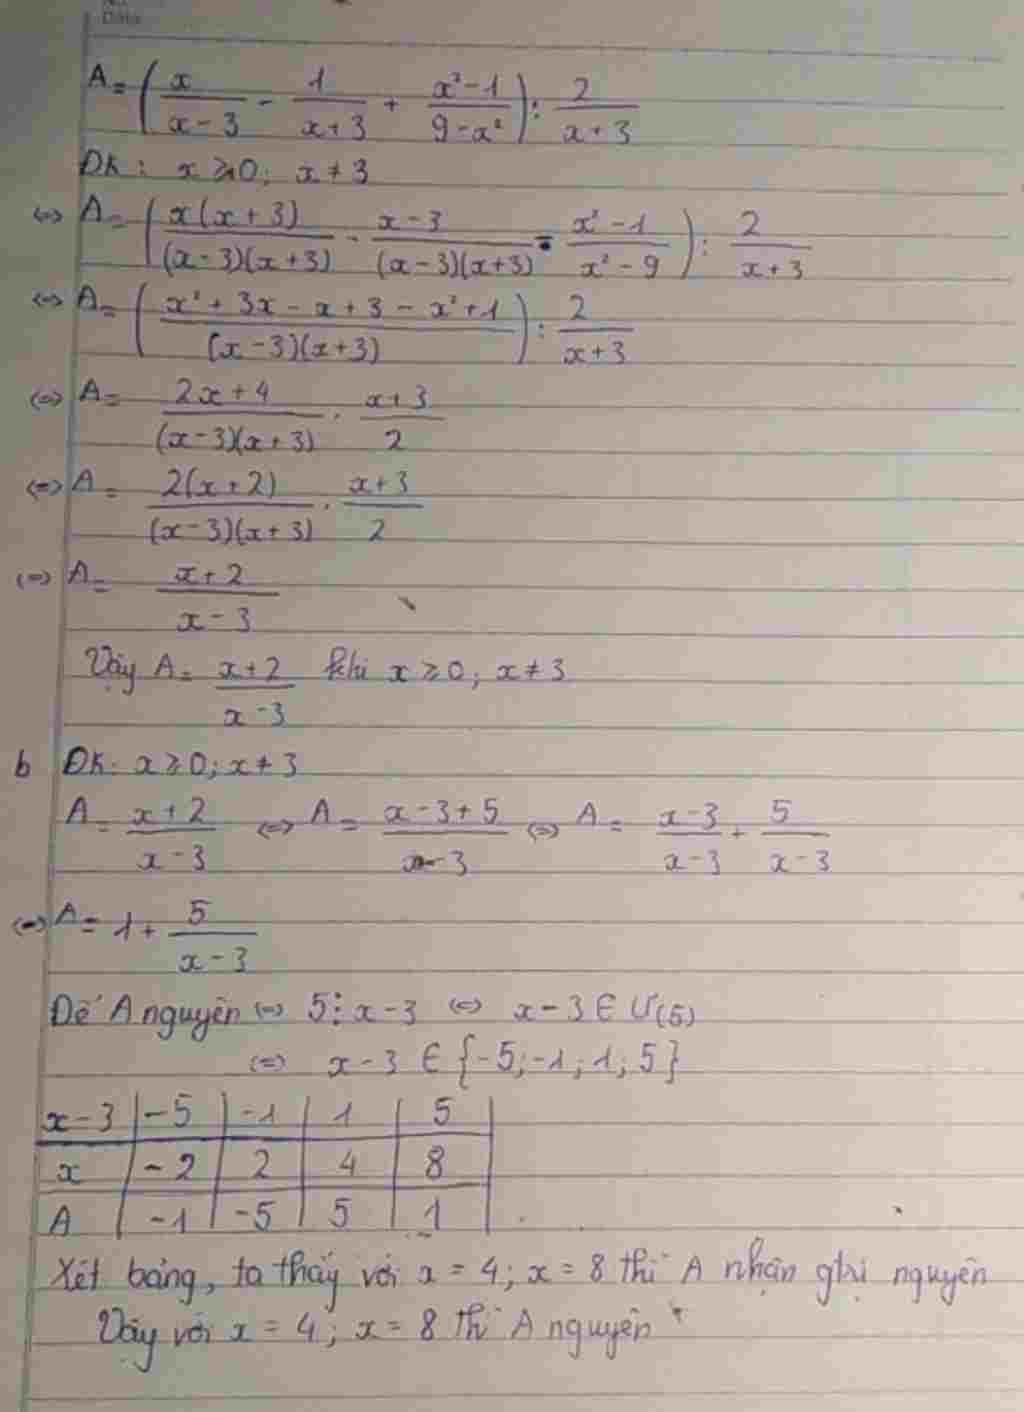 Date
A = ( x/(x-3) - 1/(x+3) + (x²-1)/(9-x²) ) : 2/(x+3)
ĐK: x ≥ 0; x ≠ 3
⇔ A = ( x(x+3)/((x-3)(x+3)) - (x-3)/((x-3)(x+3)) - (x²-1)/(x²-9) ) : 2/(x+3)
⇔ A = ( (x²+3x-x+3-x²+1)/((x-3)(x+3)) ) : 2/(x+3)
⇔ A = (2x+4)/((x-3)(x+3)) . (x+3)/2
⇔ A = 2(x+2)/((x-3)(x+3)) . (x+3)/2
⇔ A = (x+2)/(x-3)
Vậy A = (x+2)/(x-3) khi x ≥ 0; x ≠ 3
b ĐK: x ≥ 0; x ≠ 3
A = (x+2)/(x-3) ⇔ A = (x-3+5)/(x-3) ⇔ A = (x-3)/(x-3) + 5/(x-3)
⇔ A = 1 + 5/(x-3)
Để A nguyên ⇔ 5 ⋮ x-3 ⇔ x-3 ∈ Ư(5)
⇔ x-3 ∈ {-5; -1; 1; 5}
x-3 | -5 | -1 | 1 | 5
x | -2 | 2 | 4 | 8
A | -1 | -5 | 5 | 1
Xét bảng, ta thấy với x = 4; x = 8 thì A nhận gtrị nguyên
Vậy với x = 4; x = 8 thì A nguyên